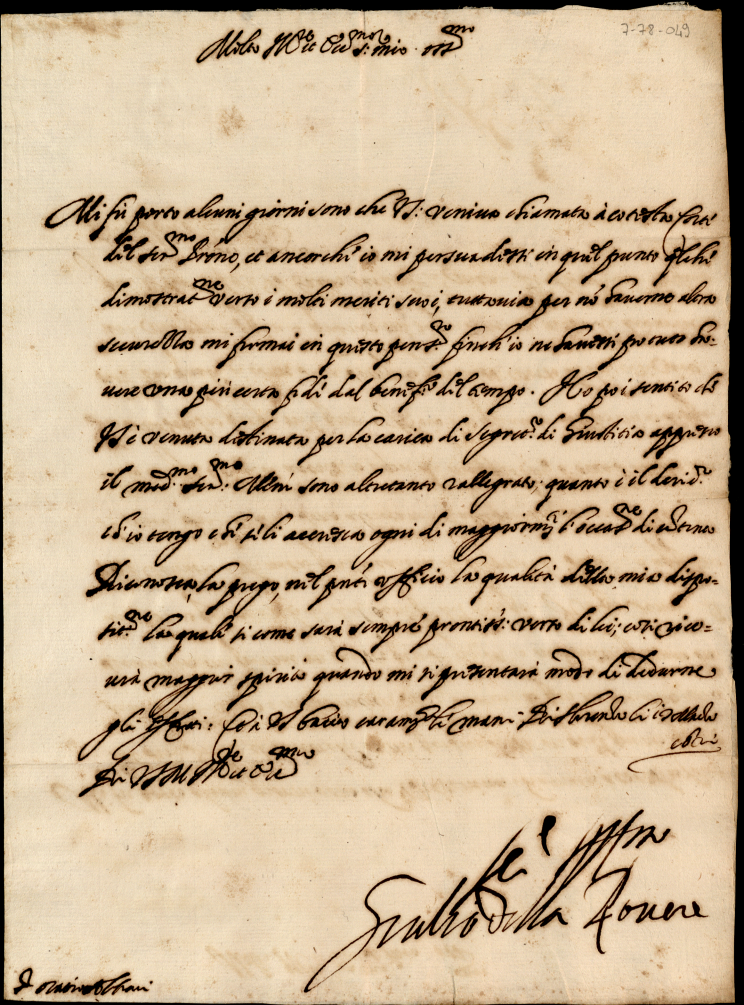 7-78-049
Molto Ill.re et Ecc.mo S.r mio oss.mo
Mi fù porto alcuni giorni sono che V.S. veniua chiamata à cotesta Corte
del Ser.mo Prone, et ancorche io mi persuadessi in quel punto qlche
dimostrat.ne verso i molti meriti suoi, tuttauia per nō hauerne altra
securezza mi firmai in questo pens.ro finch'io ne hauessi potuto ha-
uere una più certa fede dal benef.o del tempo. Ho poi sentito che
VS è venuta destinata per la carica di Segret.o di Giustitia appresso
il med.mo Ser.mo. Me ne sono altretanto rallegrato quanto è il desid.o
ch'io tengo che se li accresca ogni dì maggiorm.te l'occas.ne di
Riconosca, la prego, nel pnte officio la qualità della mia dispo-
sit.ne la quale si come sarà sempre prontiss. verso di lei, così rice-
uerà maggior spirito quando mi si presentarà modo di dedurne
gli effetti. Et à VS bacio caram.te le mani. Di li
Di VS M Ill.re et Ecc.ma
Ser.e
Giulio della Rouere